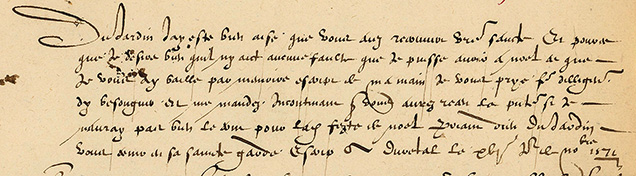 Dujardin Jay este bien aise que vous aiez recouvert vre sante Et pource
que Je desire bien quil ny ait aucune faulte que Je puisse avoir a noel ce que
Je vous ay baille par memoire escript de ma main Je vous prye fe dilligence
dy besongner et me mandez Incontinant si vous aurez receu la pnte si Je
nauray pas bien le tout pour la feste de noel priant dieu Dujardin
vous avoir en sa saincte garde Escript a Duretal le xbre 1571